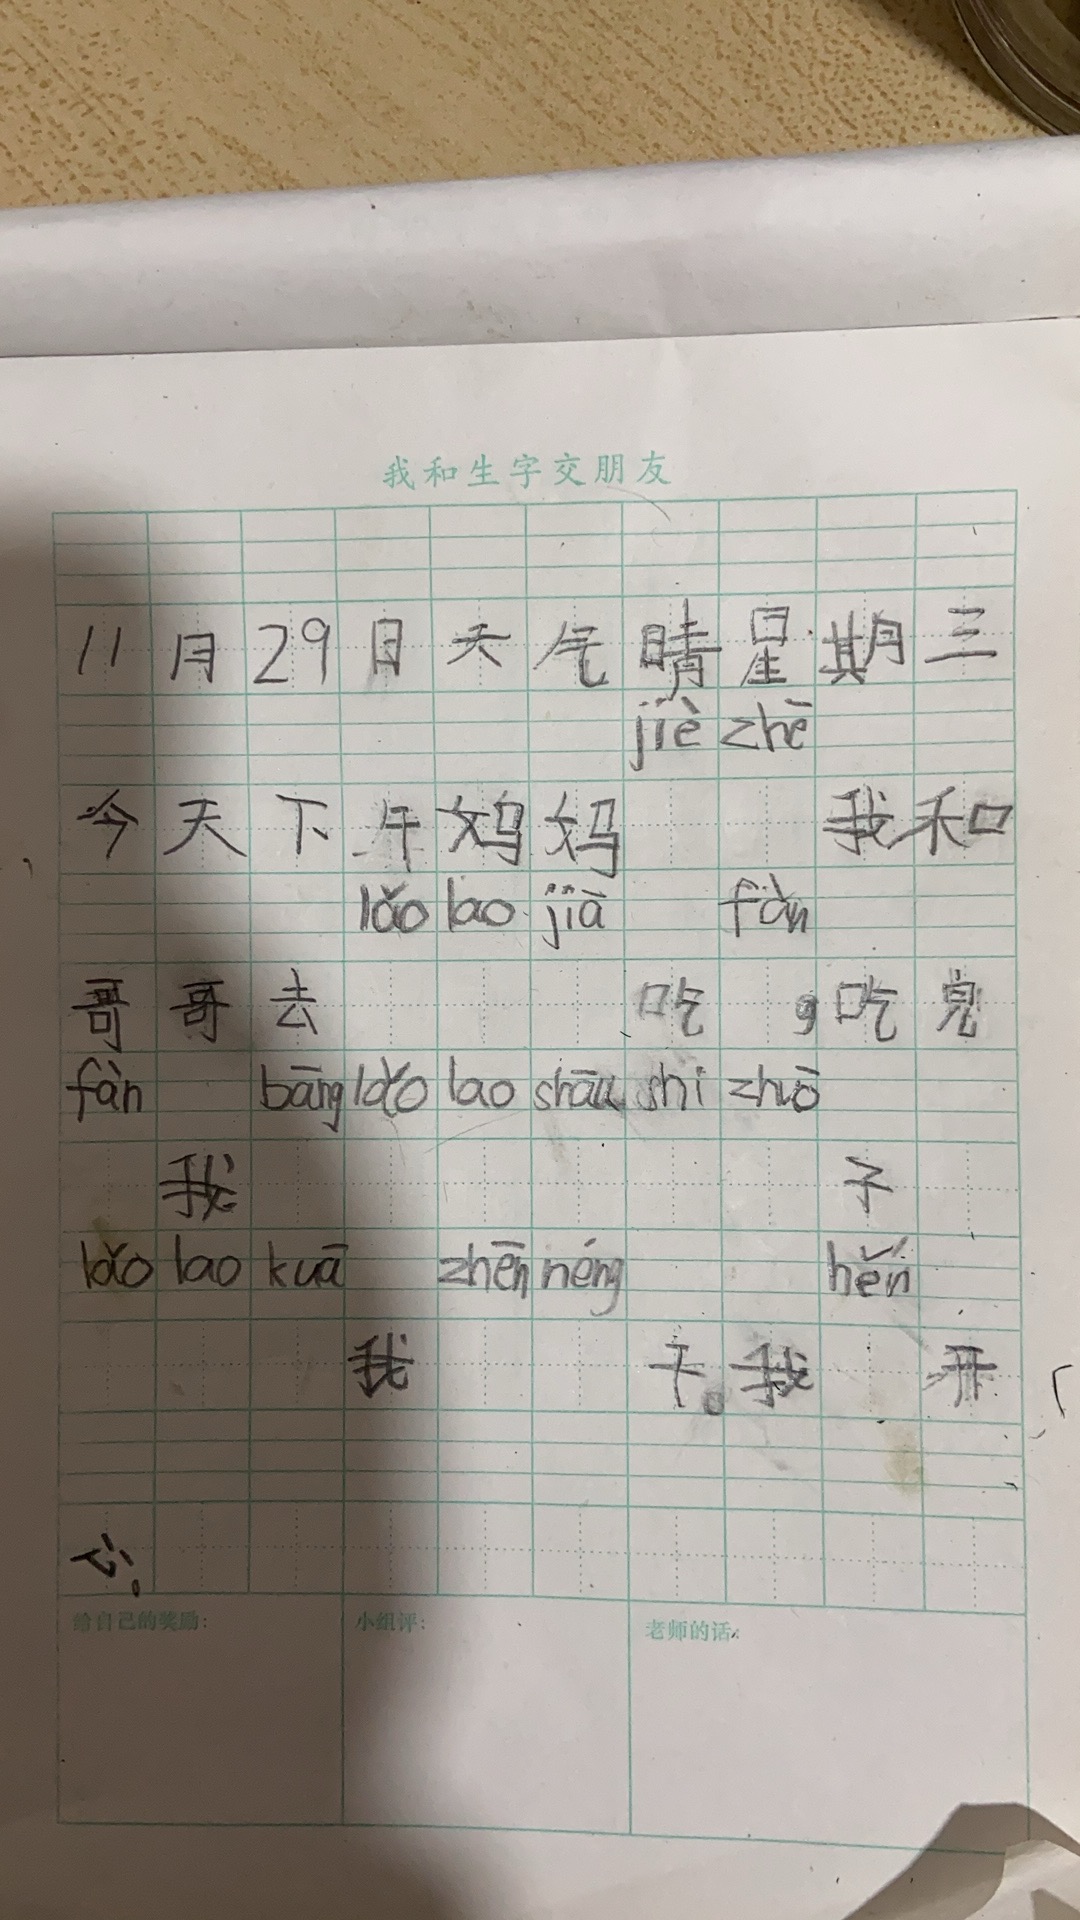 我和生字交朋友
11月29日天气晴星期三
jiè zhē
今天下午妈妈 我和
lǎo lao jiā fàn
哥哥去 吃 ,吃完
fàn bāng lǎo lao shōu shi zhuō
我 子
lǎo lao kuā zhēn néng hěn
我 干。我 开
心。
给自己的奖励:
小组评:
老师的话: